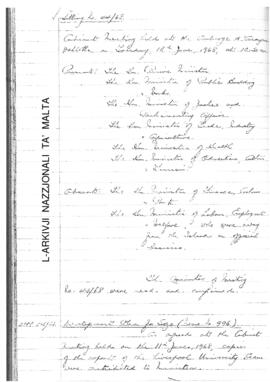 Sitting No. 45/68
Cabinet Meeting held at the Auberge d'Aragon
Valletta on Tuesday, 18th June, 1968, at 10.30 a.m.
Present: The Hon. Prime Minister
The Hon. Minister of Public Building
& Works
The Hon. Minister of Justice and
Parliamentary Affairs
The Hon. Minister of Trade, Industry
& Agriculture
The Hon. Minister of Health
The Hon. Minister of Education, Culture
& Tourism
Absent: The Hon. Minister of Finance, Customs
& Port
The Hon. Minister of Labour, Employment
& Welfare, who were away
from the Island on official
business.
The Minutes of Meeting
No. 44/68 were read and confirmed.
Development
As agreed at the Cabinet
Meeting held on the 11th June, 1968, copies
of the report of the Liverpool University Team
were distributed to Ministers.
L-ARKIVJI NAZZJONALI TA' MALTA